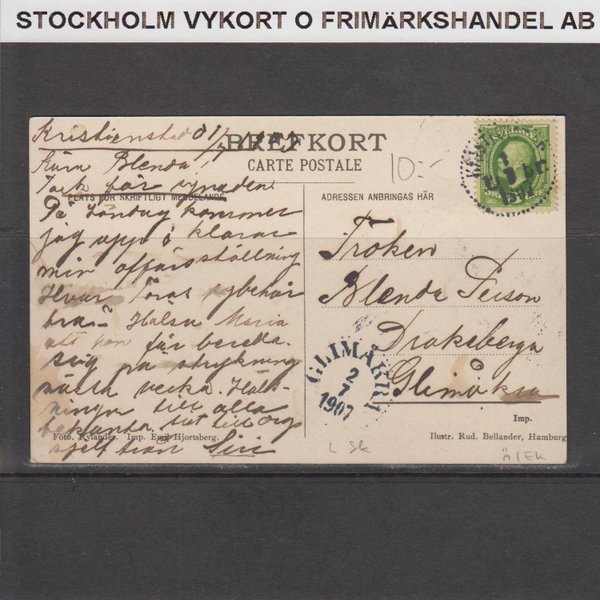 STOCKHOLM VYKORT O FRIMÄRKSHANDEL AB
BREFKORT
CARTE POSTALE
PLATS FÖR SKRIFTLIGT MEDDELANDE
ADRESSEN ANBRINGAS HÄR
Kristianstad
Kära Blenda!
Tack för
På Söndag kommer
jag upp o klarar
min affärsställning
Hvar
Hälsa Maria
att hon får bereda
sig på strykning
nästa vecka. Häls-
ningar till alla
bekanta
från Siri
Fröken
Blenda Person
Drakeberga
Glimåkra
10:-
GLIMÅKRA
2
7
1907
Imp.
Foto. Rylander. Imp. Emil Hjortsberg.
Illustr. Rud. Bellander, Hamburg
L Sk
ÄIEK